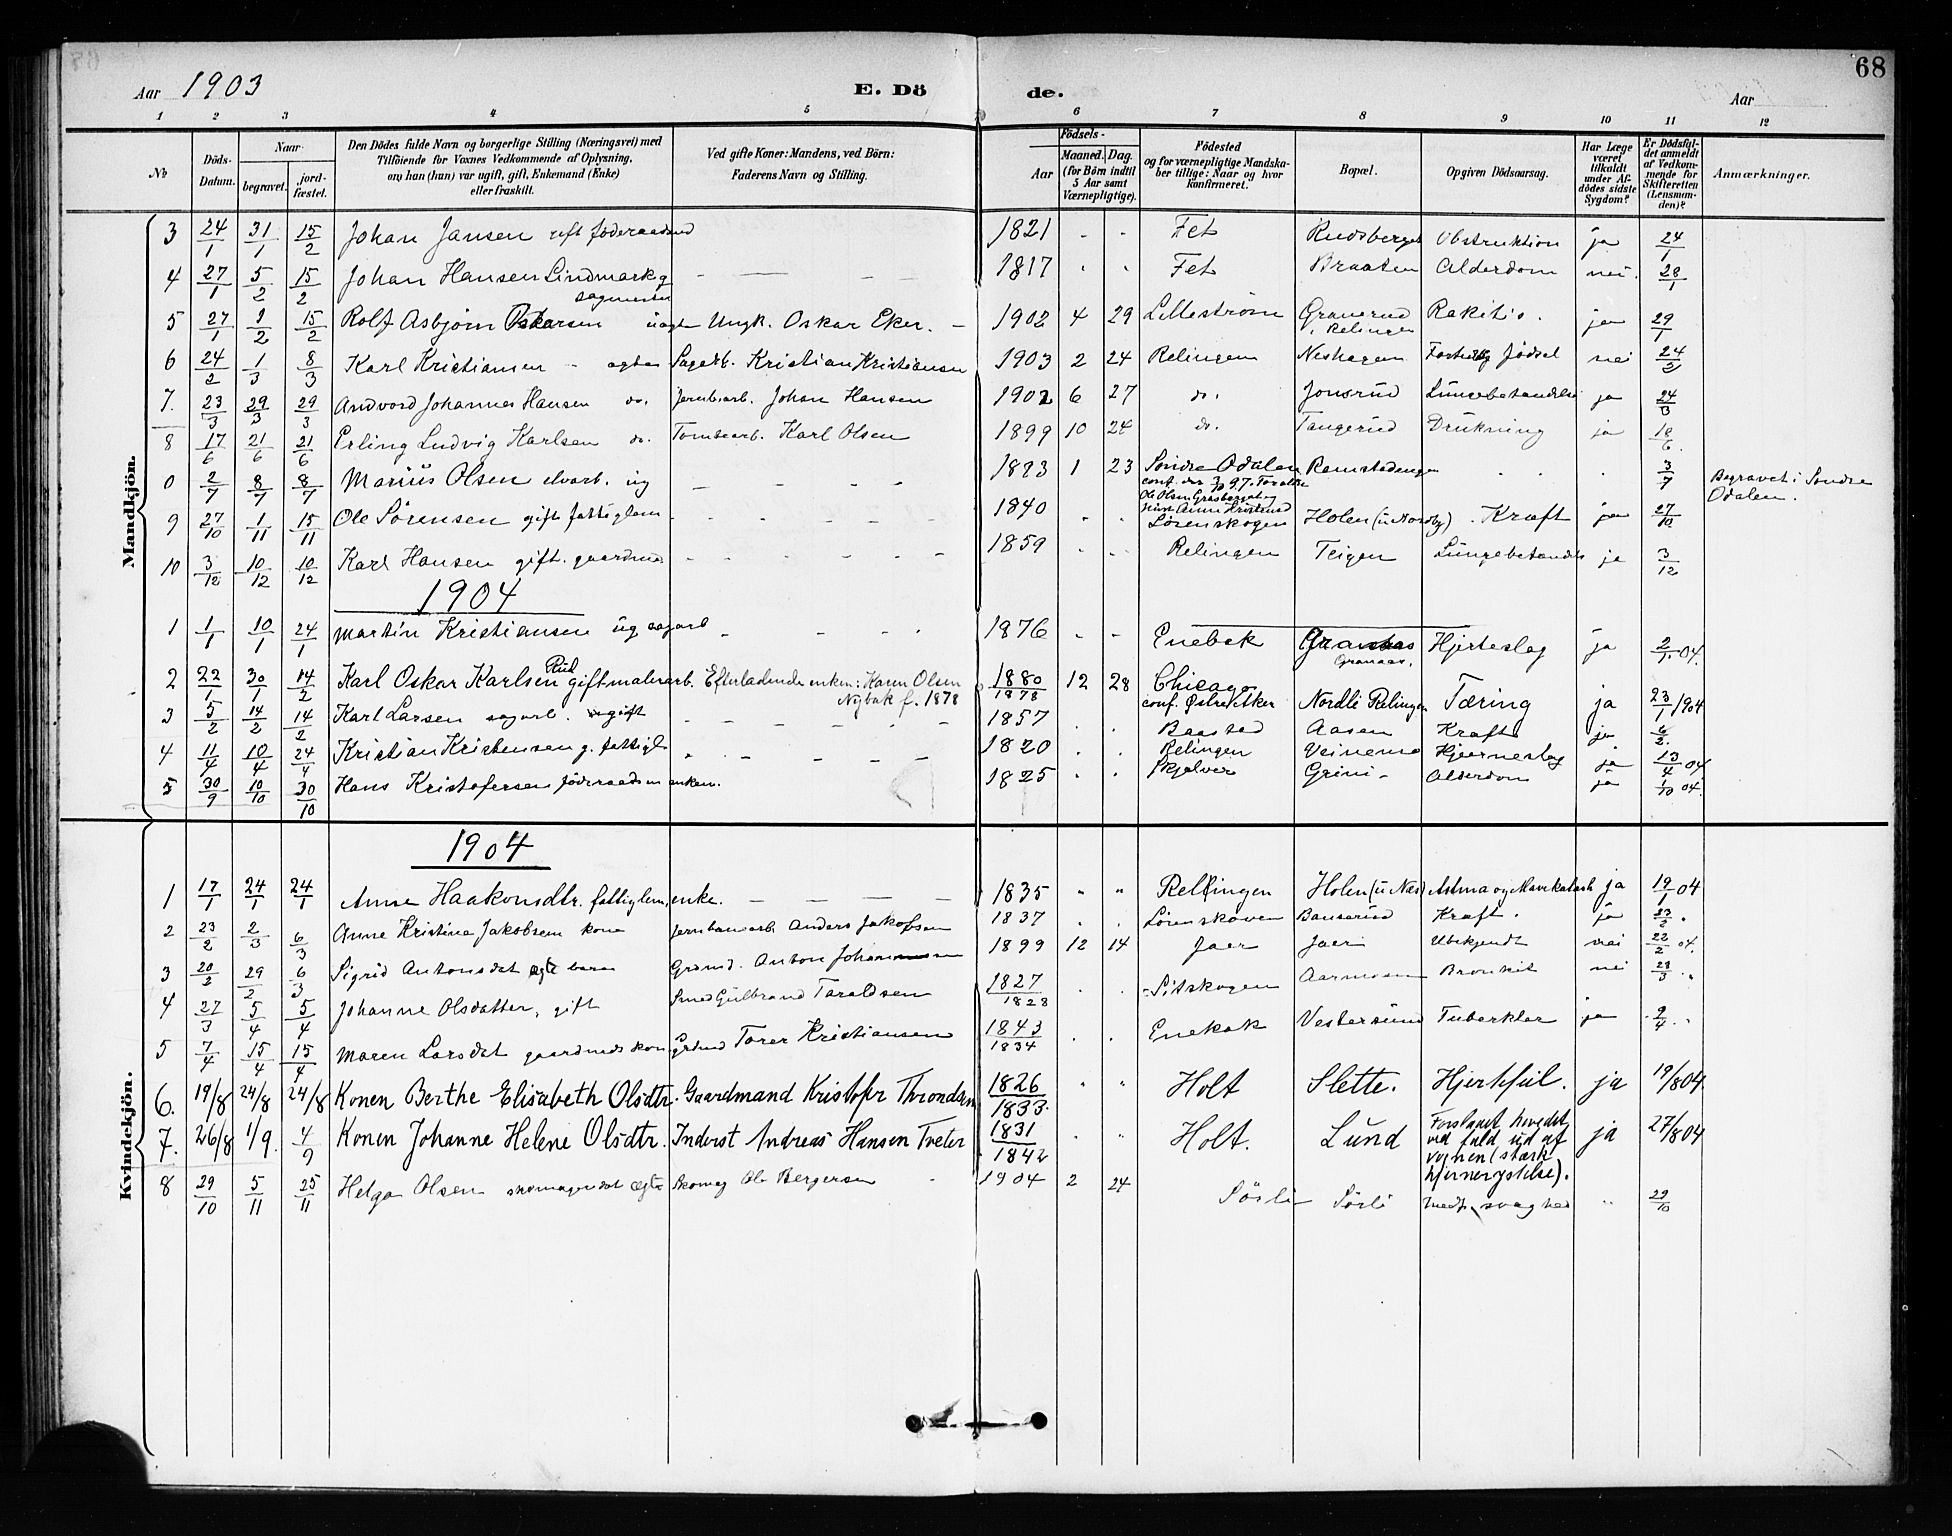 68
Aar 1903 E. Dö de. Aar
1 2 3 4 5 6 7 8 9 10 11 12
No
Döds-Datum.
Naar begravet. jordfæstet.
Den Dödes fulde Navn og borgerlige Stilling (Næringsvei) med Tilföiende for Voxnes Vedkommende af Oplysning, om han (hun) var ugift, gift, Enkemand (Enke) eller fraskilt.
Ved gifte Koner: Mandens, ved Börn: Faderens Navn og Stilling.
Födsels-
Aar
Maaned. Dag. (for Börn indtil 5 Aar samt Værnepligtige).
Födested og for værnepligtige Mandskaber tillige: Naar og hvor konfirmeret.
Bopæl.
Opgiven Dödsaarsag.
Har Læge været tilkaldt under Afdödes sidste Sygdom?
Er Dödsfaldet anmeldt af Vedkommende for Skifteretten (Lensmanden)?
Anmærkninger.
Mandkjön.
3 24/1 31/1 15/2 Johan Jansen gift föderaadsmd 1821 - - Fet Rudsberget Obstruktion ja 24/1
4 27/1 5/2 15/2 Johan Hansen Lindmark g sagmester - - - - 1817 Fet Braaten Alderdom nei 28/1
5 27/1 9/2 15/2 Rolf Asbjørn Oskarsen uægte Ungk. Oskar Eker. - 1902 4 29 Lilleström Granerud i Relingen Rakitis. ja 29/1
6 24/2 1/3 8/3 Karl Kristiansen - ægte Sagarb. Kristian Kristiansen 1903 2 24 Relingen Neshagen Fortidlig födsel nei 24/2
7. 23/3 29/3 29/3 Andvord Johannes Hansen do. jernbarb. Johan Hansen 1902 6 27 do. Jonsrud Lungebetændelse ja 24/3
8 17/6 21/6 21/6 Erling Ludvig Karlsen do. Tomtearb. Karl Olsen 1899 10 24 do. Tangerud Drukning ja 18/6
0 2/7 8/7 8/7 Marius Olsen elvarb. ug - - - - 1883 1 23 Søndre Odalen Ramstadengen 3/7 Begravet i Søndre Odalen.
conf. der 97. Forældre Ole Olsen Grasberget og hustr. Anne
9 27/10 1/11 15/11 Ole Sörensen gift fattiglem - - - - 1840 Lörenskogen Holen (u Nordby). Kræft ja 27/10
10 3/12 10/12 10/12 Karl Hansen gift gaardmd - - - - 1859 Relingen Teigen Lungebetændelse ja 3/12
1904
1 1/1 10/1 24/1 Martin Kristiansen ug sagarb - - - 1876 - - Enebak Granaas. Hjerteslag ja 2/1 04.
2 22/1 30/1 14/2 Karl Oskar Karlsen Rud gift malerarb. Efterladende enken: Karen Olsen Nybak f. 1878 1880/1878 12 28 Chicago conf. Østre Aker Nordli Relingen Tæring ja 23/1 1904
3 5/2 14/2 14/2 Karl Larsen sagarb. gift - - - - 1857 Baastad Aasen Kræft ja 6/2.
4 11/4 10/4 24/4 Kristian Kristensen g. fattigl. - - - - 1820 Relingen Veinemo Hjerneslag ja 13/4 04
5 30/9 10/10 30/10 Hans Kristofersen föderaadsm enkem. 1825 Skjelver Grini - Alderdom ja 1/10 04.
Kvindekjön.
1904
1 17/1 24/1 24/1 Anne Haakonsdtr. fattiglem, enke. - - - - 1835 " " Relingen Holen (u Næs) Astma og Mavekatarh ja 19/1 04
2 23/2 2/3 6/3 Anne Kristine Jakobsen kone jernbanearb Anders Jakobsen 1837 Lörenskoven Banserud Kræft. ja 23/2 "
3 20/2 29/2 6/3 Sigrid Antonsdat ægte barn Grdmd. Anton Johannesen 1899 12 14 Jaer Jaer Ubekjendt nei 22/2 04.
4 27/3 5/4 5/4 Johanne Olsdatter, gift Smed Gulbrand Taraldsen 1827/1828 Sitskogen Aarmosen Bronkit nei 28/3 "
5 7/4 15/4 15/4 Maren Larsdat gaardmds kone Grdmd Torer Kristiansen 1843/1834 Enebak Vestersund Tuberkler ja 9/4 "
6. 19/8 24/8 24/8 Konen Berthe Elisabeth Olsdtr. Gaardmand Kristofer Throndsen 1826/1833. " " Holt Slette. Hjertefeil. ja 19/8 04
7. 26/8 1/9. 4/9 Konen Johanne Helene Olsdtr. Inderst Andreas Hansen Tveter 1831/1842 " " Holt. Lund Forslaaet hovedet ved fald ud af vognen (stærk hjernerystelse). ja 27/8 04
8 29/10 5/11 25/11 Helga Olsen skomagerdat ægte Skomag Ole Bergersen 1904 2 24 Sörli Sörli medf. svaghed " 29/10